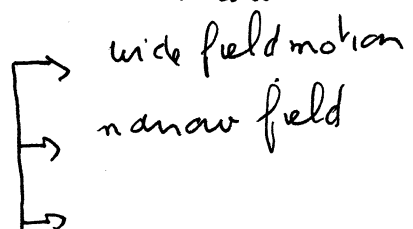 wide field motion
narrow field